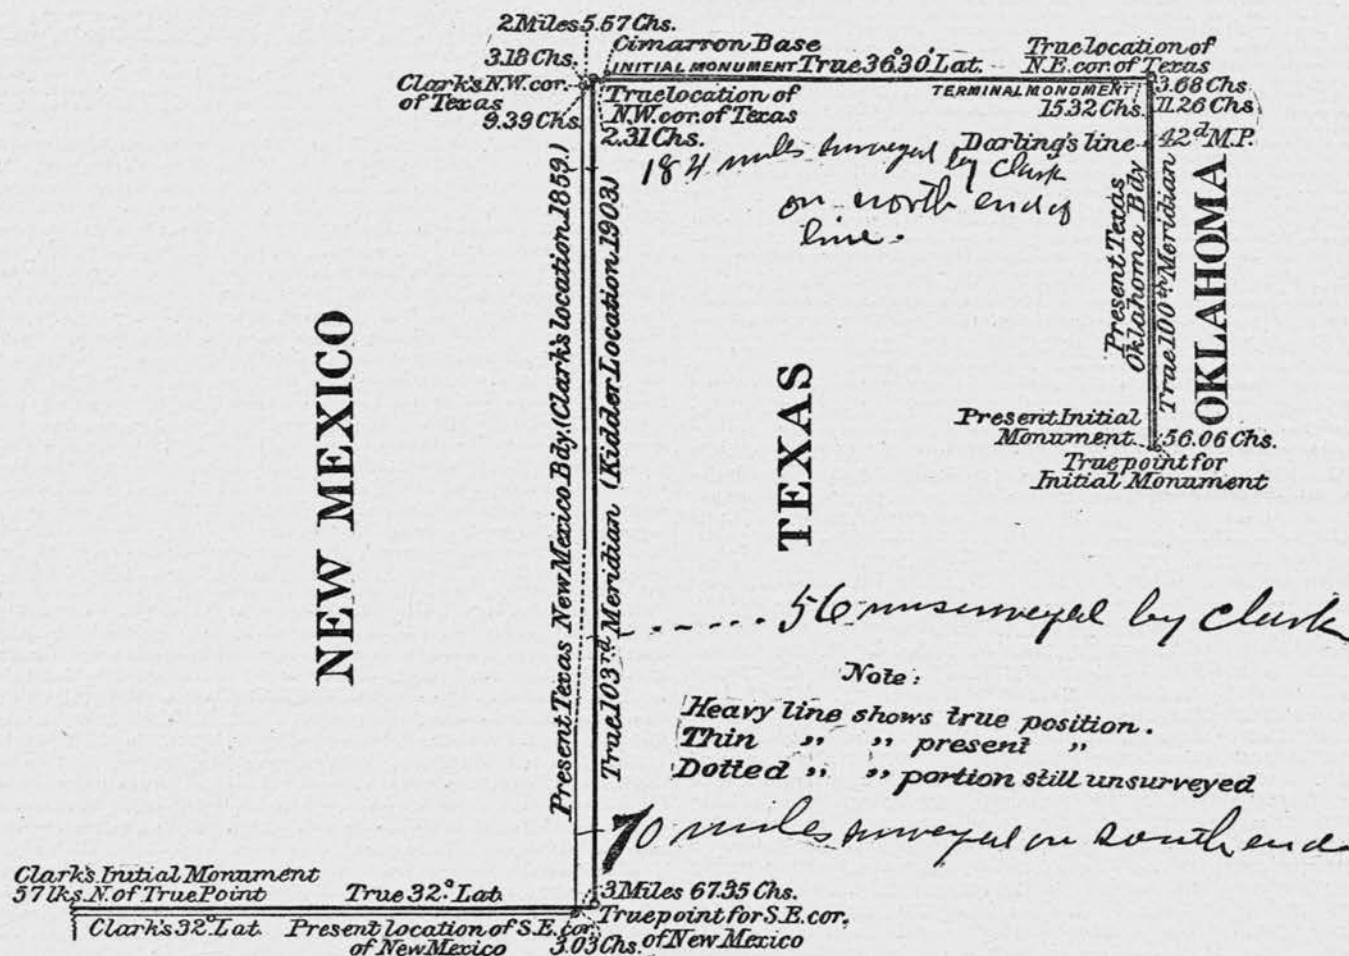 2 Miles 5.57 Chs.
3.18 Chs.
Clark's N.W. cor.
of Texas
9.39 Chs.
Cimarron Base
INITIAL MONUMENT True 36°30' Lat.
True location of
N.W. cor. of Texas
2.31 Chs.
True location of
N.E. cor. of Texas
TERMINAL MONUMENT
3.68 Chs
15.32 Chs.
11.26 Chs
Darling's line
42d M.P.
184 miles surveyed by Clark
on north end of
line.
Present Texas
Oklahoma Bdy
True 100th Meridian
OKLAHOMA
Present Initial
Monument
56.06 Chs.
True point for
Initial Monument
NEW MEXICO
Present Texas New Mexico Bdy. (Clark's location 1859.)
True 103rd Meridian (Kidder Location 1903)
TEXAS
56 unsurveyed by Clark
Note:
Heavy line shows true position.
Thin " " present "
Dotted " " portion still unsurveyed
70 miles surveyed on south end
Clark's Initial Monument
57 lks. N. of True Point
True 32° Lat.
Clark's 32° Lat.
Present location of S.E. cor.
of New Mexico
3 Miles 67.35 Chs.
True point for S.E. cor.
of New Mexico
3.03 Chs.